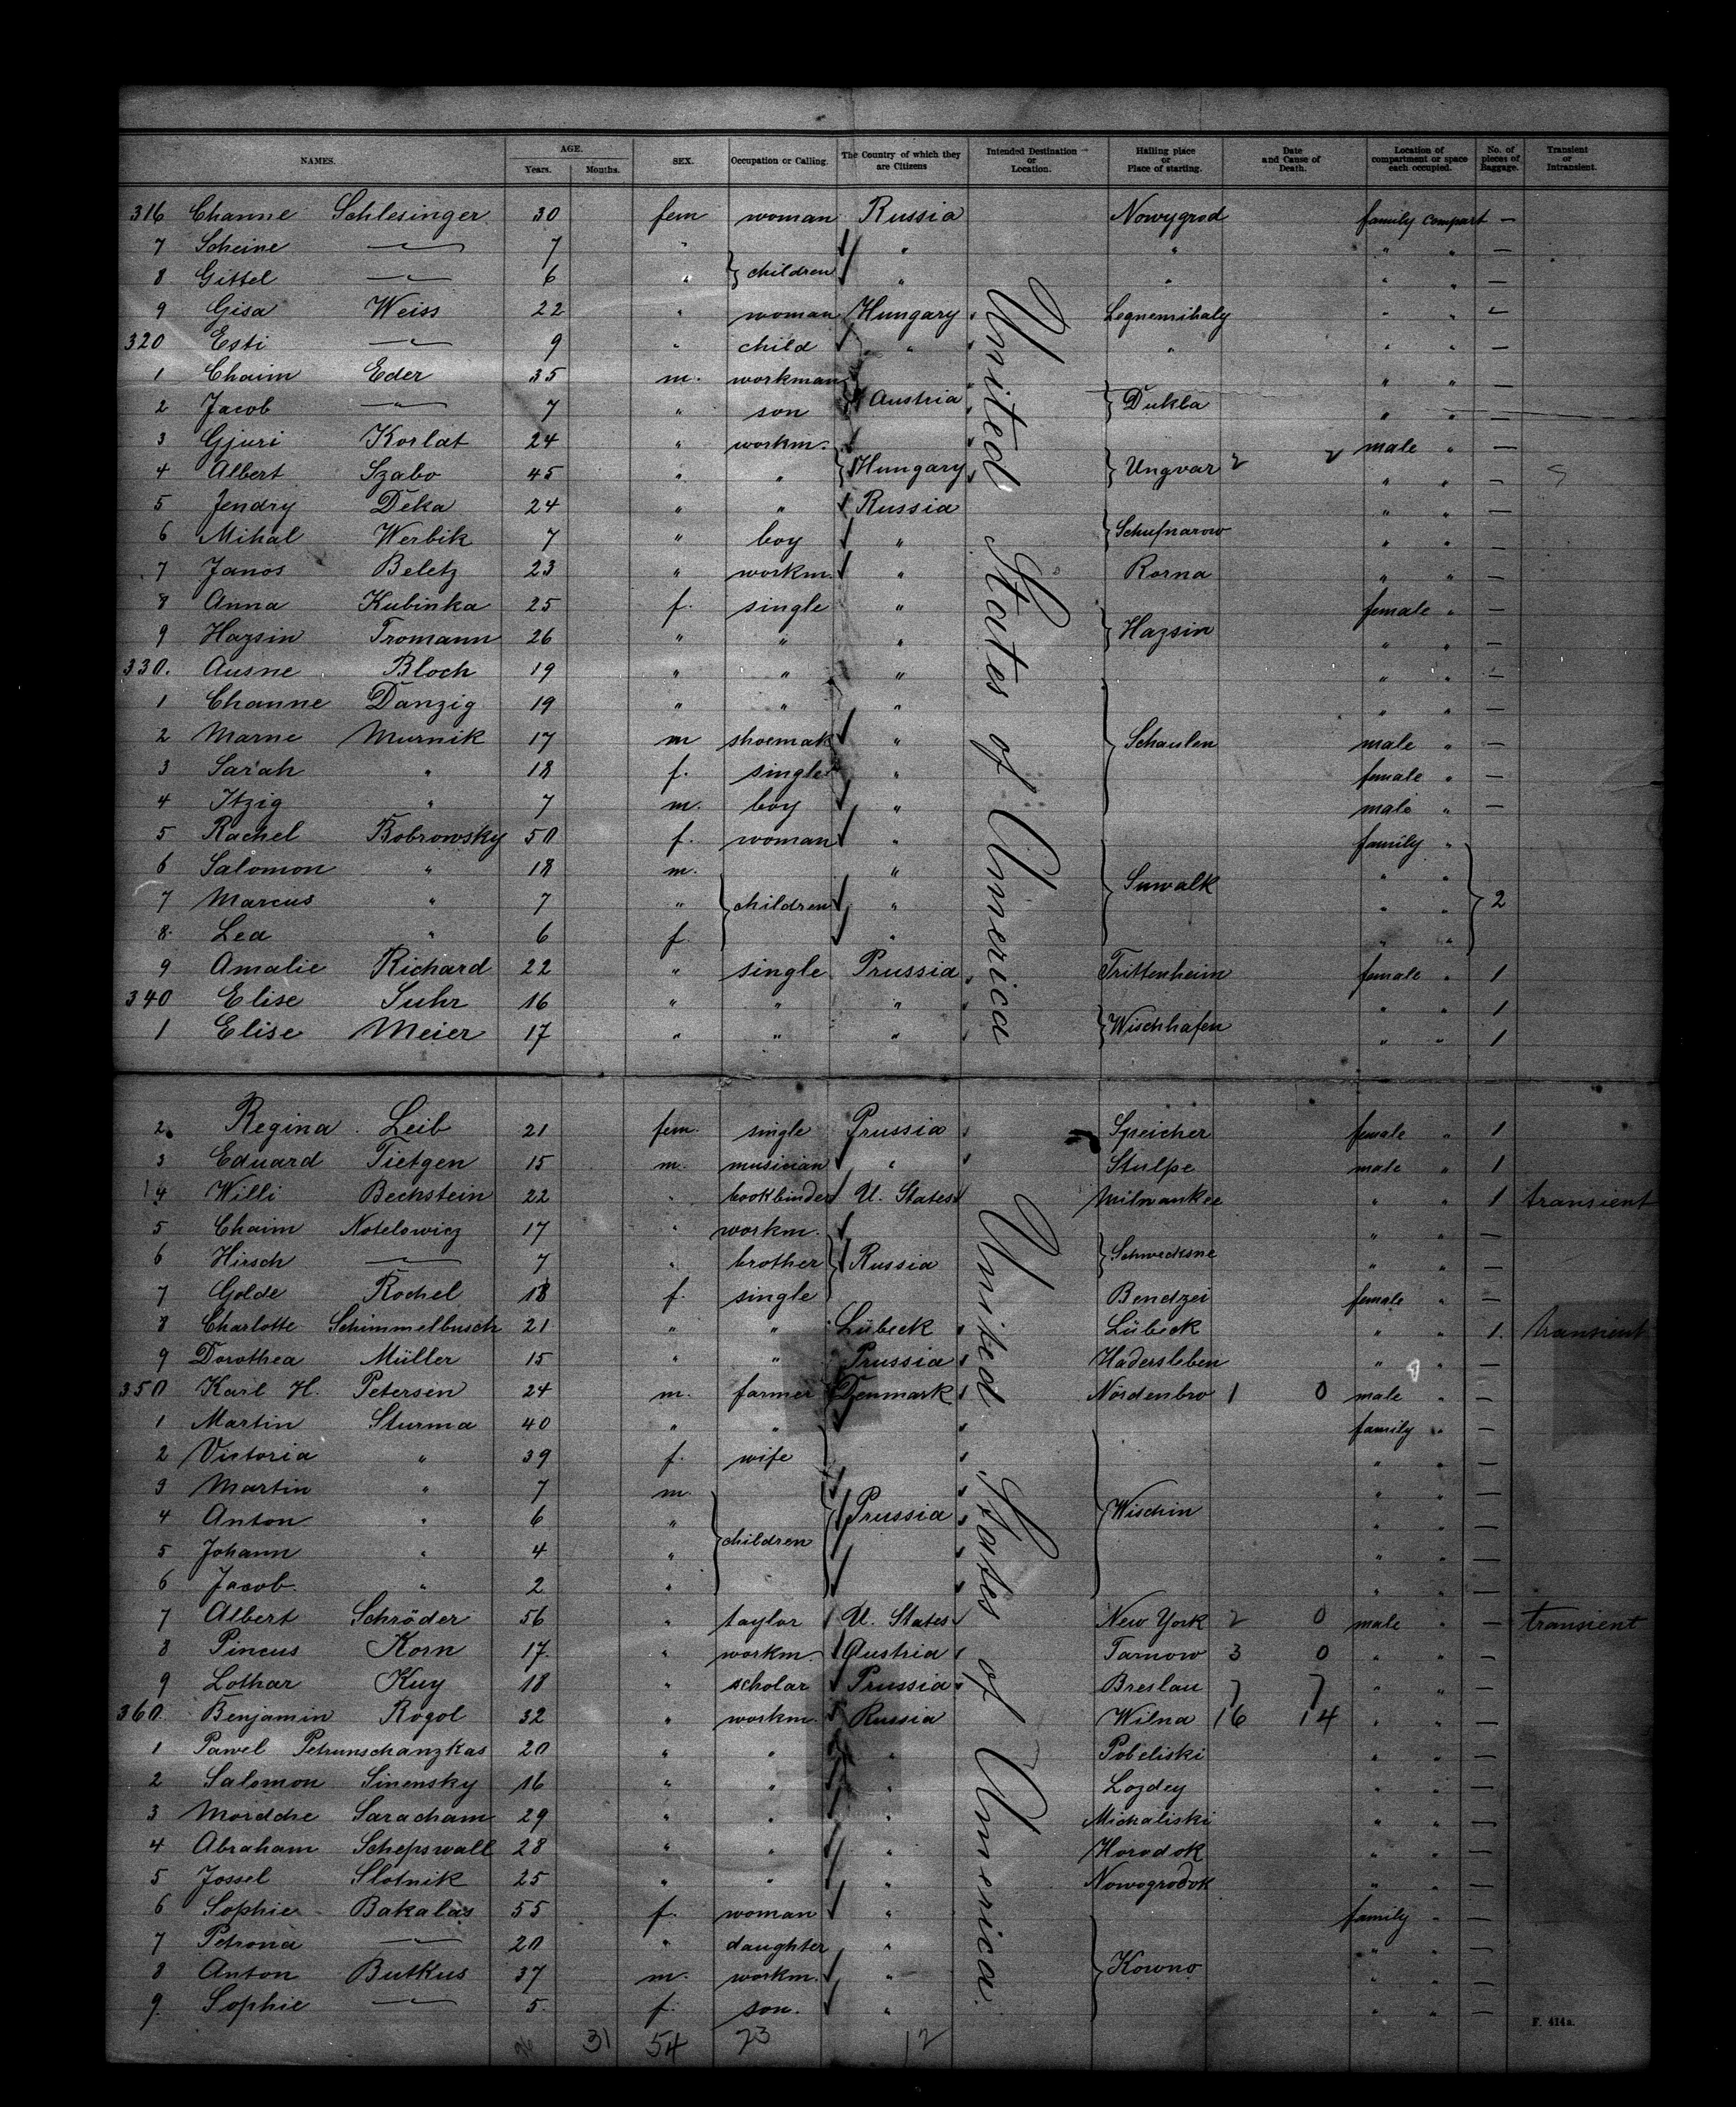 NAMES. AGE. Years. Months. SEX. Occupation or Calling. The Country of which they are Citizens Intended Destination or Location. Hailing place or Place of starting. Date and Cause of Death. Location of compartment or space each occupied. No. of pieces of Baggage. Transient or Intransient.
316 Channe Schlesinger 30 fem woman Russia Nowygrod family compart —
7 Scheine —"— 7 " " " " " —
8 Gittel —"— 6 " } children " " " " —
9 Gisa Weiss 22 " woman Hungary Legnemihaly " " —
320 Esti —"— 9 " child " " " " —
1 Chaim Eder 35 m. workman " " —
2 Jacob —"— 7 " son } Austria } Dukla " " —
3 Gjuri Korlat 24 " workm. male " —
4 Albert Szabo 45 " " } Hungary } Ungvar 2 2 " " —
5 Jendry Deka 24 " " Russia " " —
6 Mihal Werbik 7 " boy " } Schufnarow " " —
7 Janos Beletz 23 " workm. " Rorna " " —
8 Anna Kubinka 25 f. single " female " —
9 Hazsin Tromann 26 " " " } Hazsin " " —
330. Ausne Bloch 19 " " " " " —
1 Channe Danzig 19 " " " " " —
2 Marne Murnik 17 m shoemak " } Schaulen male " —
3 Sarah " 18 f. single " female " —
4 Itzig " 7 m. boy " male " —
5 Rachel Bobrowsky 50 f. woman " family "
6 Salomon " 18 m. " } Suwalk " "
7 Marcus " 7 " } children " " " } 2
8. Lea " 6 f. " " "
9 Amalie Richard 22 " single Prussia Trittenheim female " 1
340 Elise Suhr 16 " " " " " 1
1 Elise Meier 17 " " " } Wischhafen " " 1
United States of America
2. Regina Leib 21 fem. single Prussia Speicher female " 1
3 Eduard Tietgen 15 m. musician " Stulpe male " 1
4 Willi Bechstein 22 " bookbinder U. States Milwaukee " " 1 transient
5 Chaim Notelowicz 17 " workm. " " —
6 Hirsch —"— 7 " brother } Russia } Schwecksne " " —
7 Golde Rochel 18 f. single Bendzei female " —
8 Charlotte Schimmelbusch 21 " " Lübeck Lübeck " " 1. transient
9 Dorothea Müller 15 " " Prussia Hadersleben " " —
350 Karl H. Petersen 24 m. farmer Denmark Nordenbro 1 0 male " —
1 Martin Sturma 40 " " family " —
2 Victoria " 39 f. wife " " —
3 Martin " 7 m. " " —
4 Anton " 6 " } Prussia } Wischin " " —
5 Johann " 4 " } children " " —
6 Jacob. " 2 " " " —
7 Albert Schröder 56 " taylor U. States New York 2 0 male " — transient
8 Pincus Korn 17. " workm. Austria Tarnow 3 0 " " —
9 Lothar Kuy 18 " scholar Prussia Breslau 7 7 " " —
360. Benjamin Rogol 32 " workm. Russia Wilna 16 14 " " —
1 Pawel Petrunschanzkas 20 " " " Pobeliski " " —
2 Salomon Sinensky 16 " " " Lozdey " " —
3 Morddhe Saracham 29 " " " Michaliski " " —
4 Abraham Schepswall 28 " " " Horodok " " —
5 Jossel Slotnik 25 " " " Nowogrodok " " —
6 Sophie Bakalas 55 f. woman " family " —
7 Petrona —"— 20 " daughter " " " —
8 Anton Butkus 37 m. workm. " } Kowno " " —
9. Sophie —"— 5. f. son. " " " —
United States of America.
31 54 23 12
F. 414a.